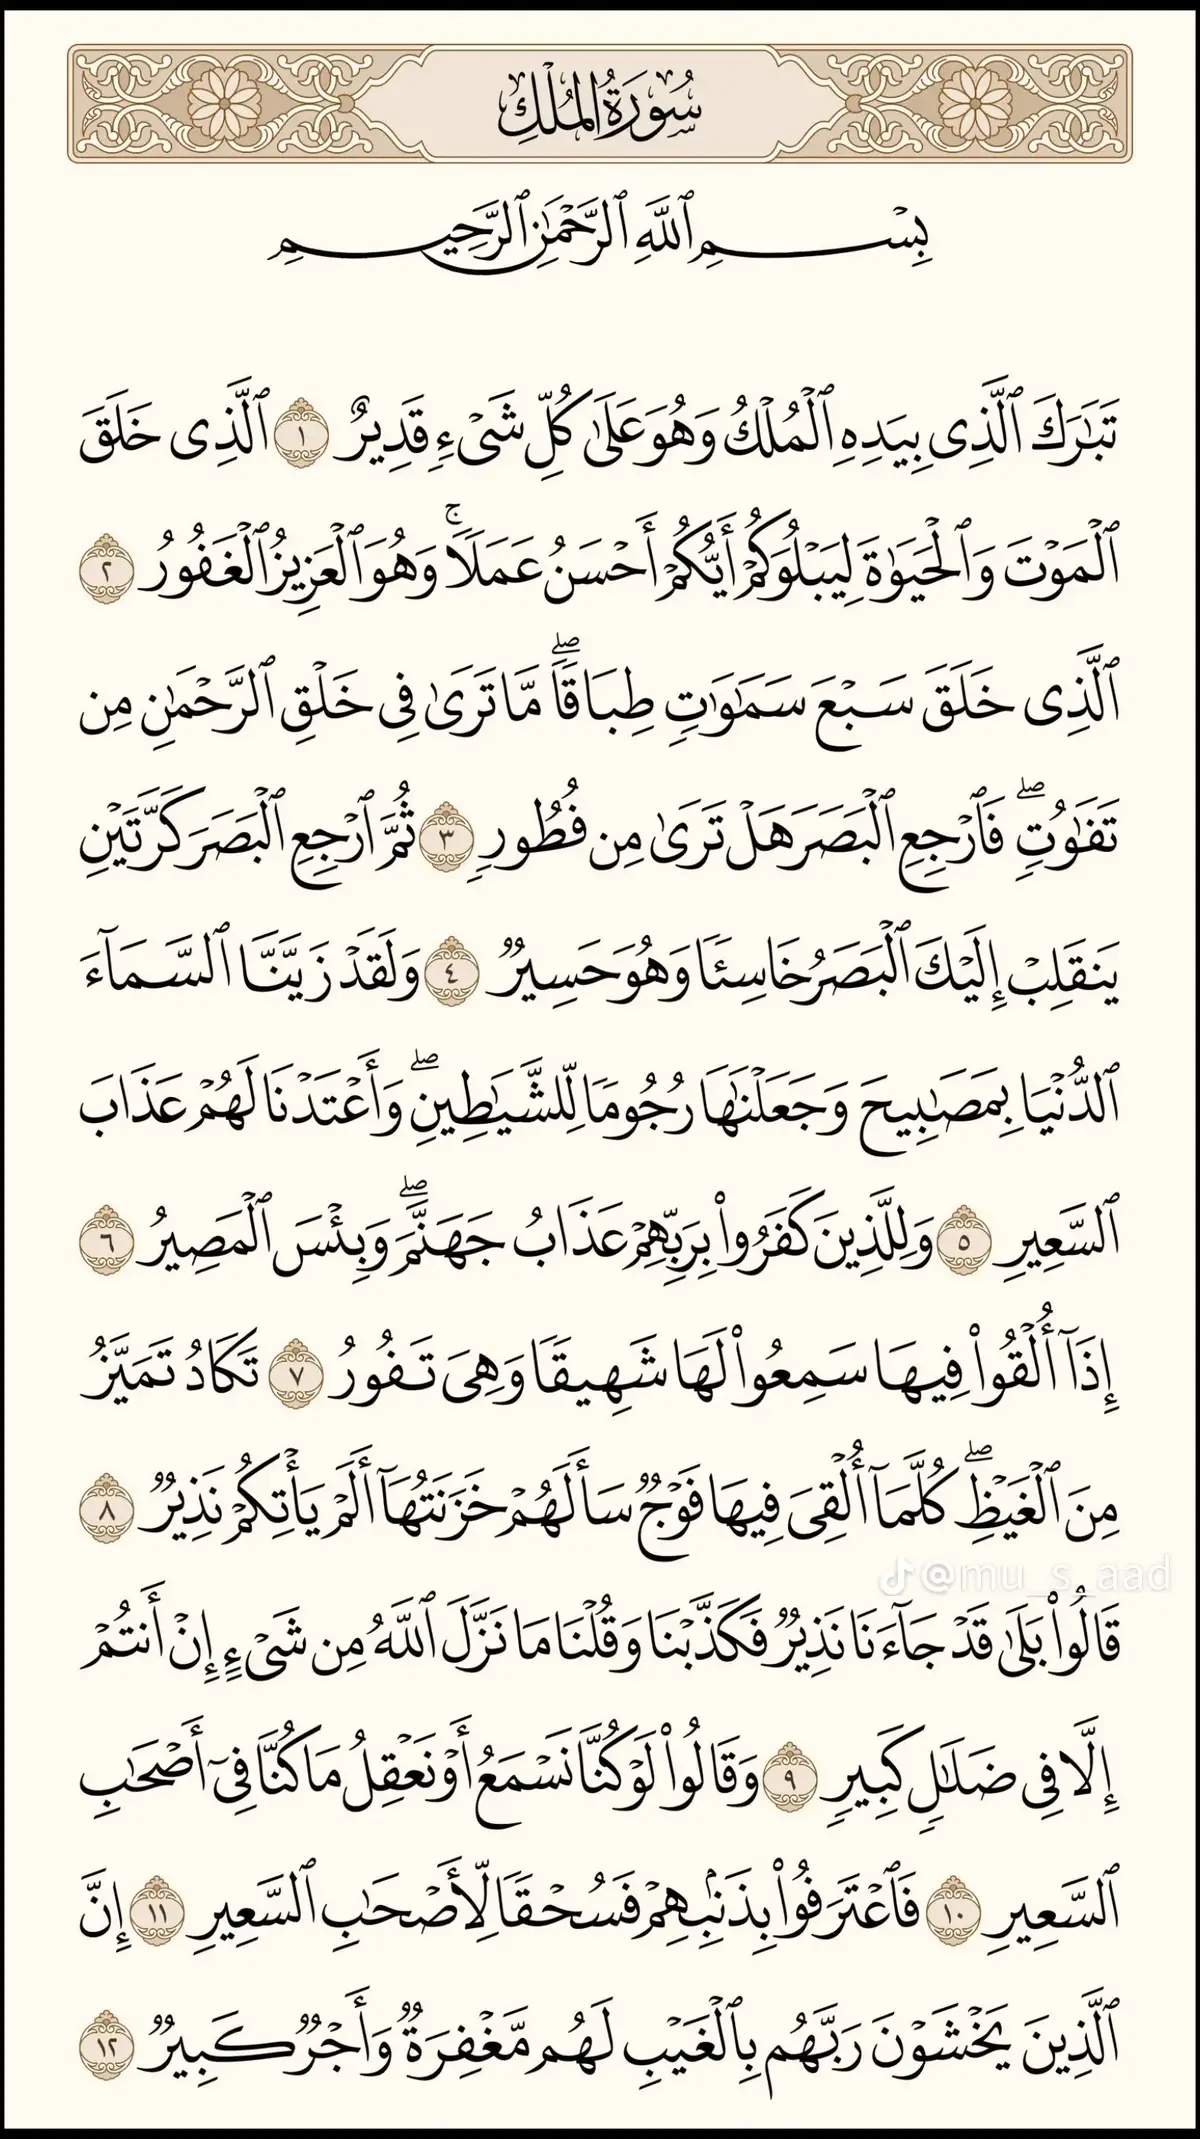 سُورَةُ الْمُلْكِ
بِسْمِ ٱللَّهِ ٱلرَّحْمَٰنِ ٱلرَّحِيمِ
تَبَٰرَكَ ٱلَّذِى بِيَدِهِ ٱلْمُلْكُ وَهُوَ عَلَىٰ كُلِّ شَىْءٍ قَدِيرٌ ١ ٱلَّذِى خَلَقَ
ٱلْمَوْتَ وَٱلْحَيَوٰةَ لِيَبْلُوَكُمْ أَيُّكُمْ أَحْسَنُ عَمَلًا ۚ وَهُوَ ٱلْعَزِيزُ ٱلْغَفُورُ ٢
ٱلَّذِى خَلَقَ سَبْعَ سَمَٰوَٰتٍ طِبَاقًا ۖ مَّا تَرَىٰ فِى خَلْقِ ٱلرَّحْمَٰنِ مِن
تَفَٰوُتٍ ۖ فَٱرْجِعِ ٱلْبَصَرَ هَلْ تَرَىٰ مِن فُطُورٍ ٣ ثُمَّ ٱرْجِعِ ٱلْبَصَرَ كَرَّتَيْنِ
يَنقَلِبْ إِلَيْكَ ٱلْبَصَرُ خَاسِئًا وَهُوَ حَسِيرٌ ٤ وَلَقَدْ زَيَّنَّا ٱلسَّمَآءَ
ٱلدُّنْيَا بِمَصَٰبِيحَ وَجَعَلْنَٰهَا رُجُومًا لِّلشَّيَٰطِينِ ۖ وَأَعْتَدْنَا لَهُمْ عَذَابَ
ٱلسَّعِيرِ ٥ وَلِلَّذِينَ كَفَرُوا۟ بِرَبِّهِمْ عَذَابُ جَهَنَّمَ ۖ وَبِئْسَ ٱلْمَصِيرُ ٦
إِذَآ أُلْقُوا۟ فِيهَا سَمِعُوا۟ لَهَا شَهِيقًا وَهِىَ تَفُورُ ٧ تَكَادُ تَمَيَّزُ
مِنَ ٱلْغَيْظِ ۖ كُلَّمَآ أُلْقِىَ فِيهَا فَوْجٌ سَأَلَهُمْ خَزَنَتُهَآ أَلَمْ يَأْتِكُمْ نَذِيرٌ ٨
@mu_s_aad
قَالُوا۟ بَلَىٰ قَدْ جَآءَنَا نَذِيرٌ فَكَذَّبْنَا وَقُلْنَا مَا نَزَّلَ ٱللَّهُ مِن شَىْءٍ إِنْ أَنتُمْ
إِلَّا فِى ضَلَٰلٍ كَبِيرٍ ٩ وَقَالُوا۟ لَوْ كُنَّا نَسْمَعُ أَوْ نَعْقِلُ مَا كُنَّا فِىٓ أَصْحَٰبِ
ٱلسَّعِيرِ ١٠ فَٱعْتَرَفُوا۟ بِذَنۢبِهِمْ فَسُحْقًا لِّأَصْحَٰبِ ٱلسَّعِيرِ ١١ إِنَّ
ٱلَّذِينَ يَخْشَوْنَ رَبَّهُم بِٱلْغَيْبِ لَهُم مَّغْفِرَةٌ وَأَجْرٌ كَبِيرٌ ١٢